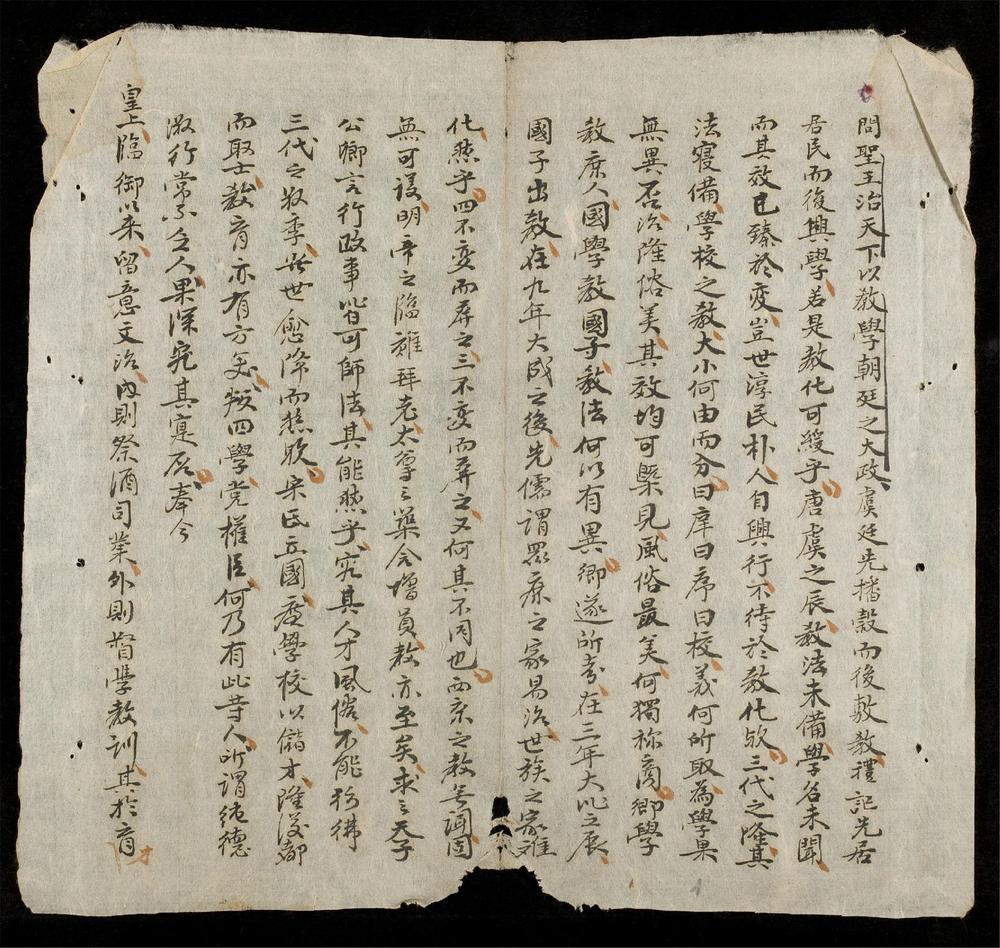 問聖王治天下以教學朝廷之大政虞廷先播穀而後敷教禮記先居
居民而後興學若是教化可緩乎唐虞之辰教法未備學名未聞
而其效已臻於変豈世淳民朴人自興行不待於教化欤三代之隆其
法寖備學校之教大小何由而分曰庠曰序曰校義何所取為學果
無異否治隆俗美其效均可槩見風俗最美何獨称商鄉學
教庶人國學教國子教法何以有異鄉遂所考在三年大比之辰
國子出教在九年大成之後先儒謂眾庶之家易治世族之家难
化然乎四不変而屏之三不変而屏之又何其不同也西京之教無謂固
無可議明帝之臨雍拜老太學之築舍增員教亦至矣求之天子
公卿言行政事皆可師法其能然乎究其人才風俗不能彷彿
三代之叔季世愈降而愈敗宋氏立國慶學校以儲才隆設都
而取士教育亦有方矣 四學党權臣何乃有此等人所謂純德
淑行常不乏人果深究其寔否奉今
皇上臨御以来留意文治內則祭酒司業外則督學教訓其於育
才